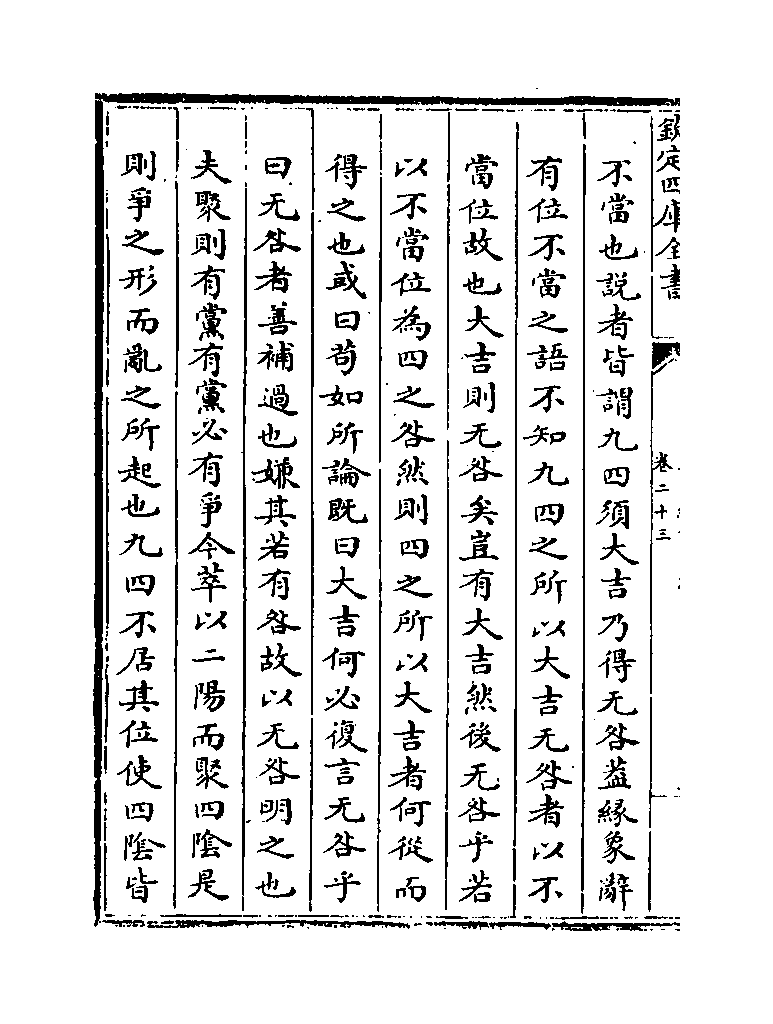 欽定四庫全書
卷二十三
不當也說者皆謂九四須大吉乃得无咎葢緣象辭
有位不當之語不知九四之所以大吉无咎者以不
當位故也大吉則无咎矣豈有大吉然後无咎乎若
以不當位為四之咎然則四之所以大吉者何從而
得之也或曰苟如所論既曰大吉何必復言无咎乎
曰无咎者善補過也嫌其若有咎故以无咎明之也
夫聚則有黨有黨必有爭今萃以二陽而聚四陰是
則爭之形而亂之所起也九四不居其位使四陰皆